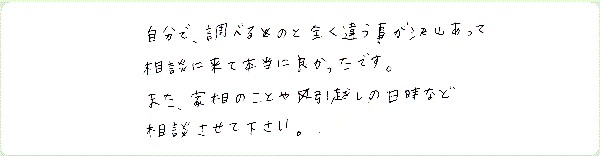 自分で、調べるものと全く違う事が沢山あって
相談に来て本当に良かったです。
また、家相のことや引越しの日時など
相談させて下さい。